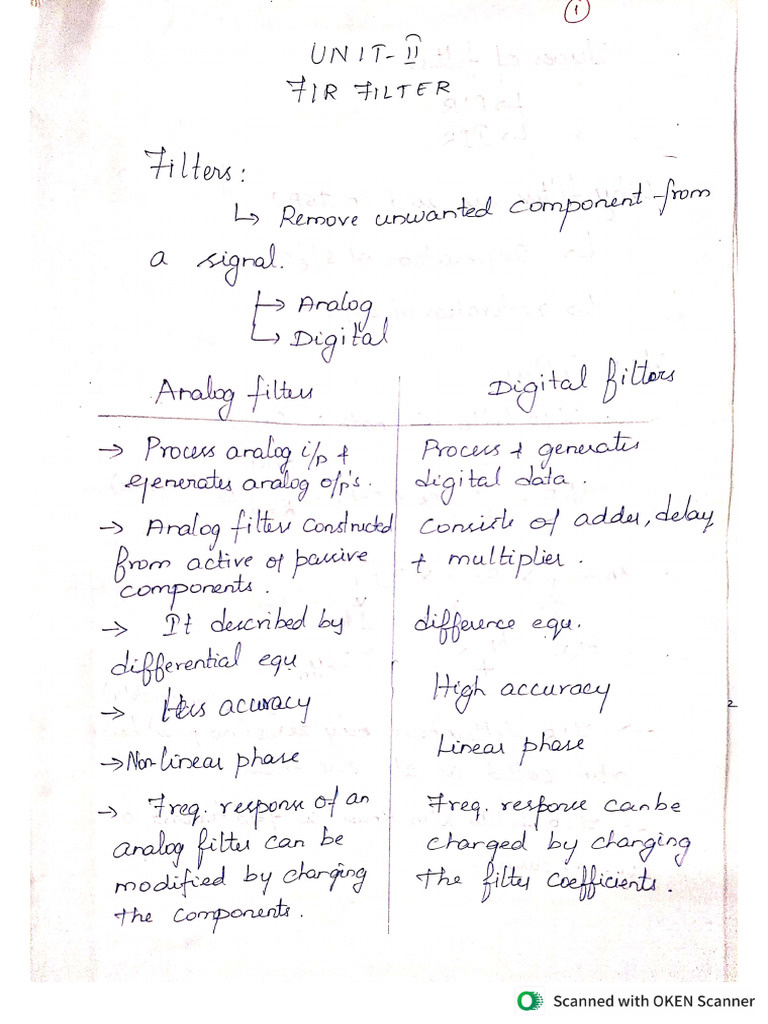 1
UNIT-II
FIR FILTER
Filters:
↳ Remove unwanted component from
a signal.
→ Analog
↳ Digital
Analog filters
→ Process analog i/p &
generates analog o/p's.
→ Analog filters constructed
from active of passive
components.
→ It described by
differential equ
→ Less accuracy
→ Non-linear phase
→ Freq. response of an
analog filter can be
modified by changing
the components.
Digital filters
Process & generates
digital data.
Consists of adder, delay
& multiplier.
difference equ.
High accuracy
Linear phase
Freq. response can be
changed by changing
the filter coefficients.
2
Scanned with OKEN Scanner